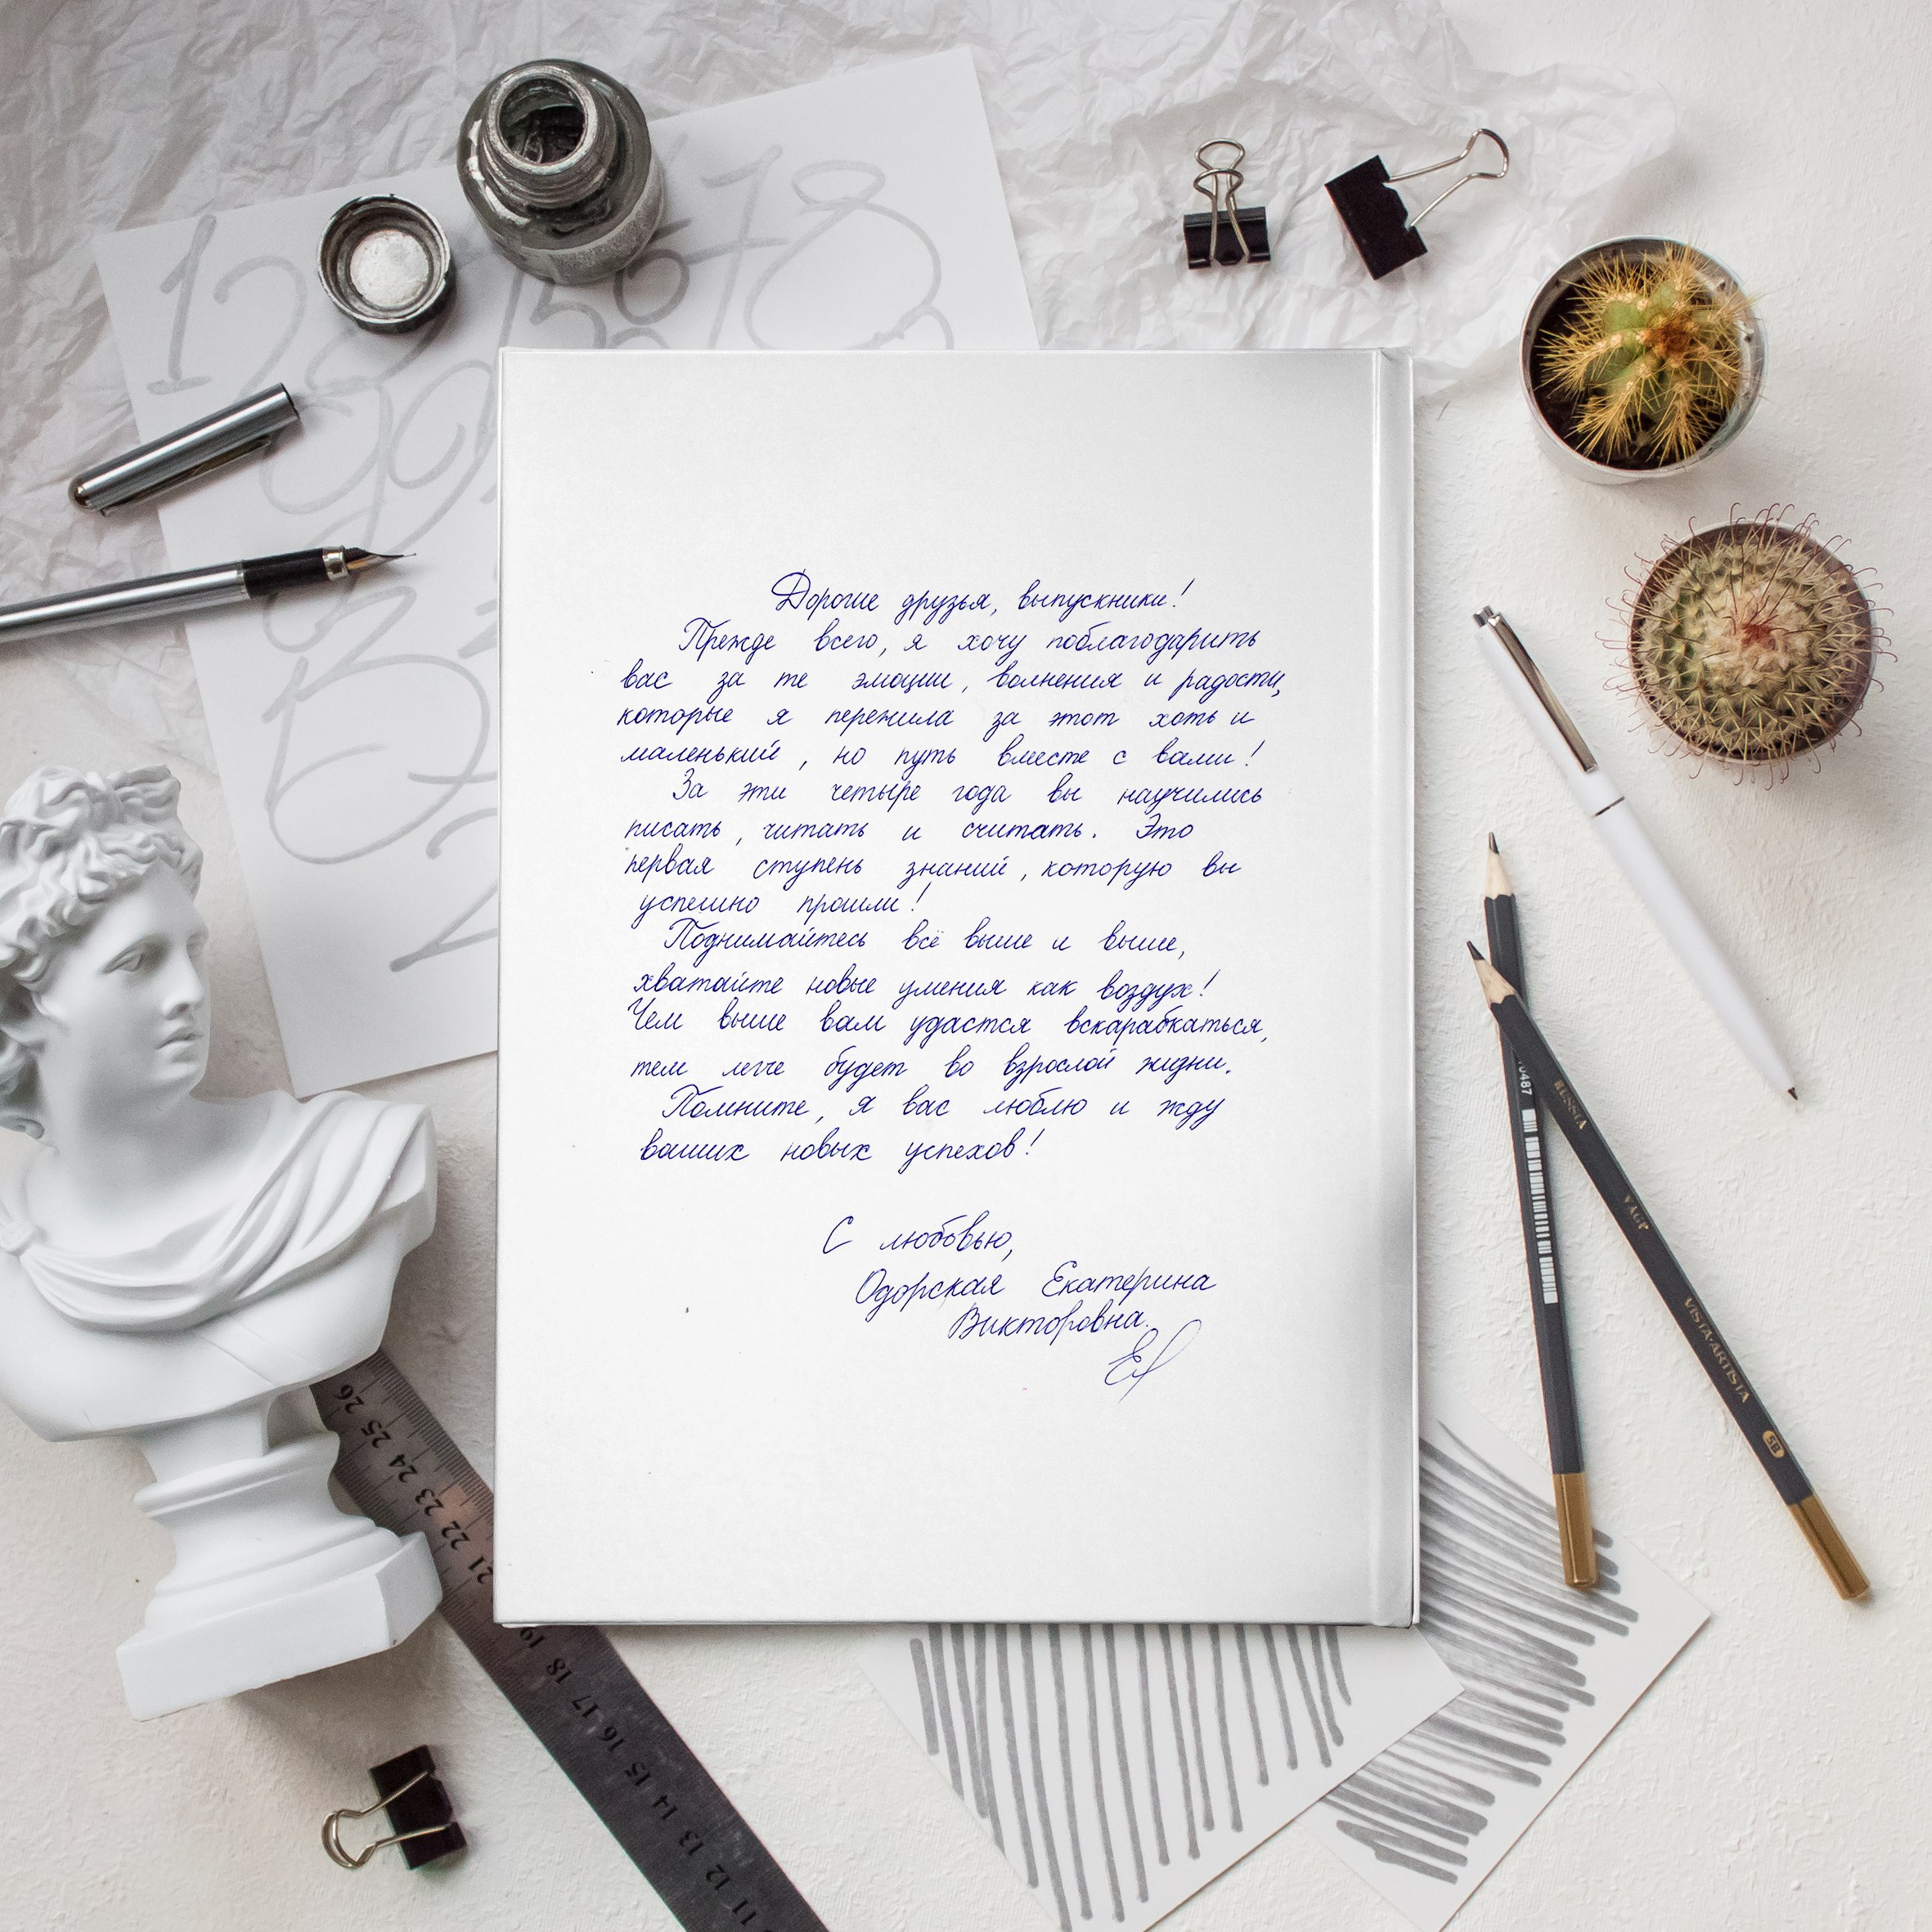 Дорогие друзья, выпускники!
Прежде всего, я хочу поблагодарить
вас за те эмоции, волнения и радости,
которые я пережила за этот хоть и
маленький, но путь вместе с вами!
За эти четыре года вы научились
писать, читать и считать. Это
первая ступень знаний, которую вы
успешно прошли!
Поднимайтесь всё выше и выше,
хватайте новые умения как воздух!
Чем выше вам удастся вскарабкаться,
тем легче будет во взрослой жизни.
Помните, я вас люблю и жду
ваших новых успехов!
С любовью,
Одорская Екатерина
Викторовна.
RUSSIA
VISTA-ARTISTA
5B
0487
26
25
24
23
22
21
19
18
17
16
15
14
13
12
11